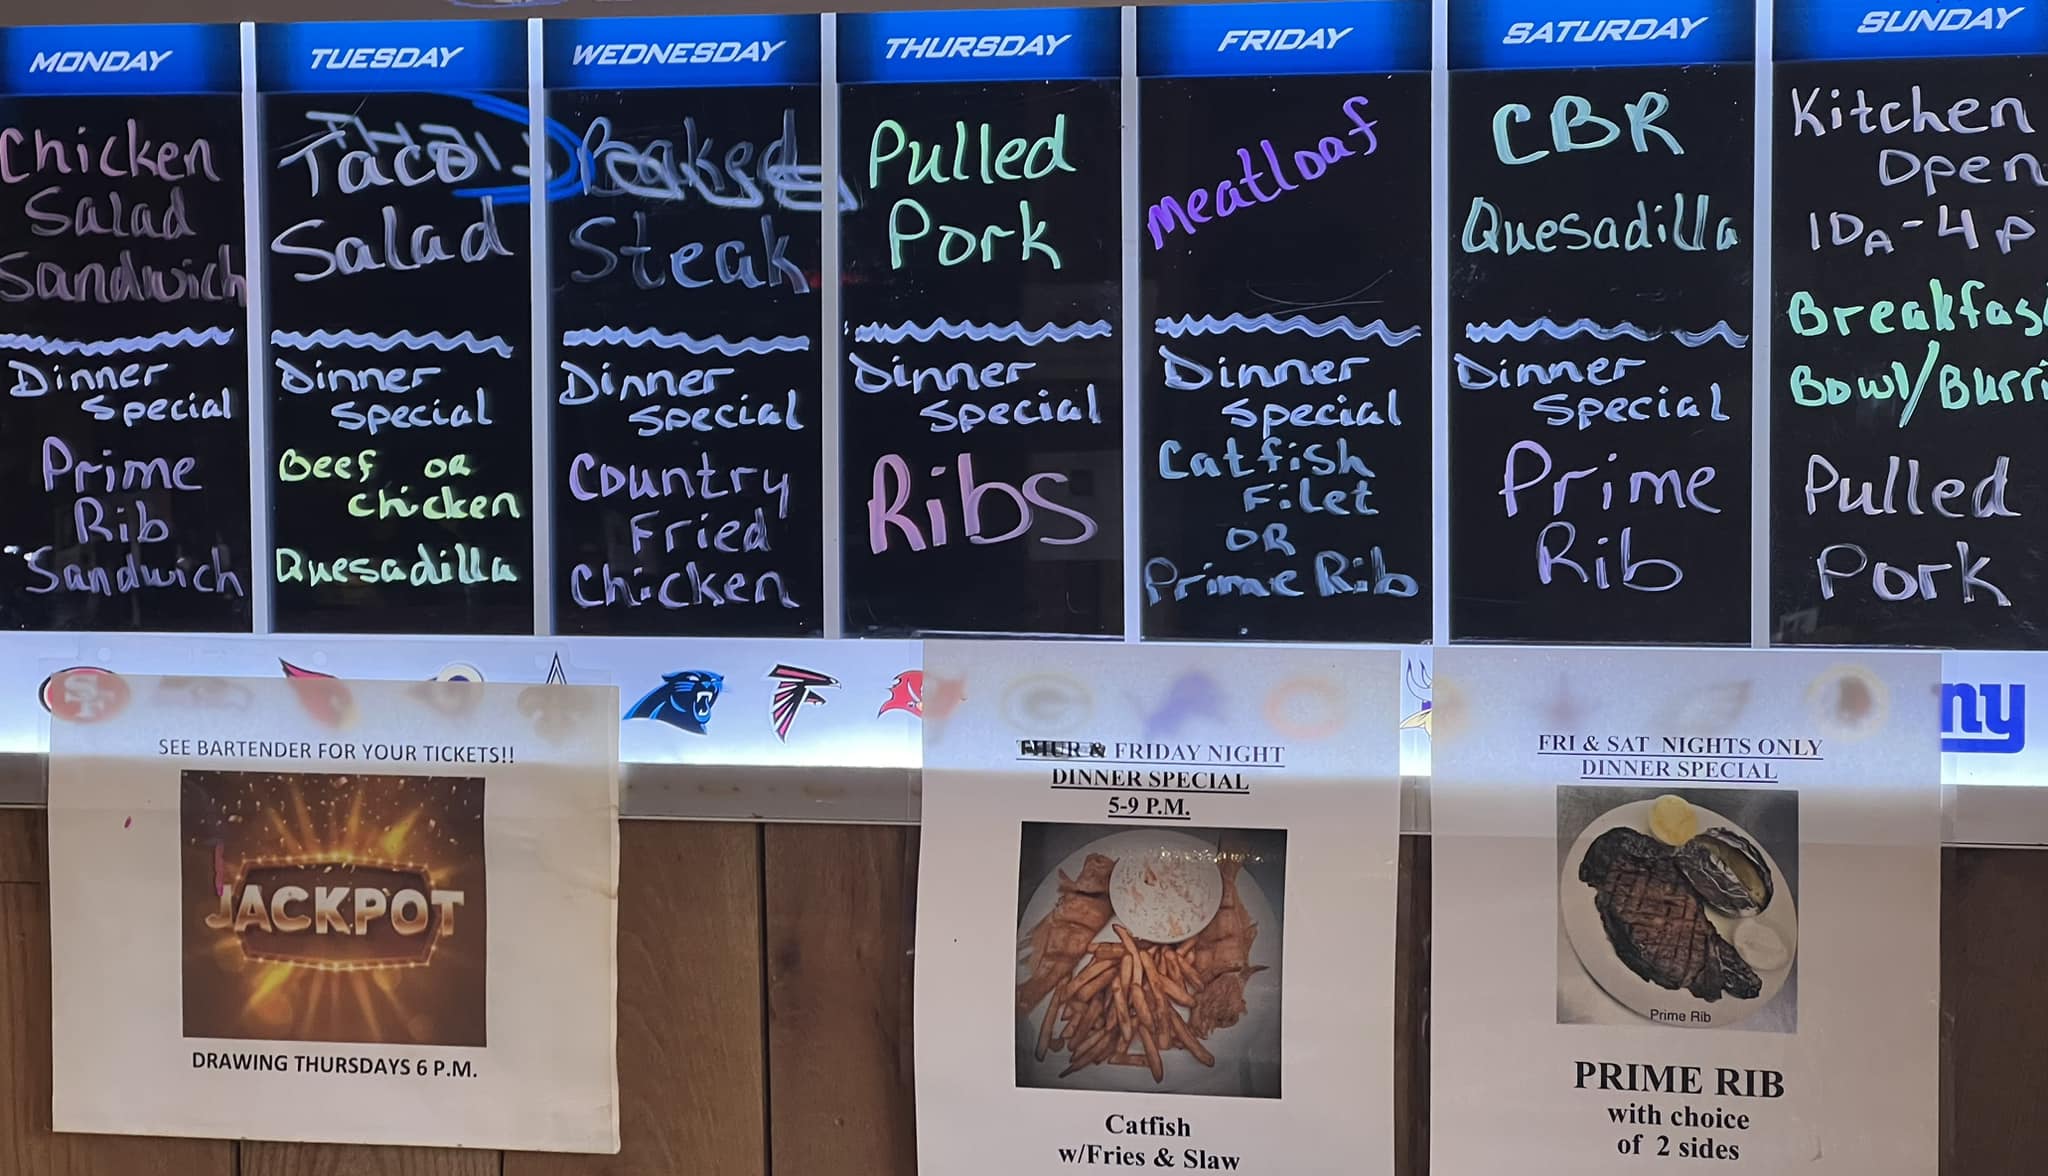 MONDAY
Chicken
Salad
Sandwich
Dinner
Special
Prime
Rib
Sandwich
TUESDAY
Taco
Salad
Dinner
Special
Beef OR
Chicken
Quesadilla
WEDNESDAY
Baked
Steak
Dinner
Special
Country
Fried
Chicken
THURSDAY
Pulled
Pork
Dinner
Special
Ribs
FRIDAY
Meatloaf
Dinner
Special
Catfish
Filet
OR
Prime Rib
SATURDAY
CBR
Quesadilla
Dinner
Special
Prime
Rib
SUNDAY
Kitchen
Open
10A-4P
Breakfas
Bowl/Burri
Pulled
Pork
SF
ny
SEE BARTENDER FOR YOUR TICKETS!!
JACKPOT
DRAWING THURSDAYS 6 P.M.
THUR & FRIDAY NIGHT
DINNER SPECIAL
5-9 P.M.
Catfish
w/Fries & Slaw
FRI & SAT NIGHTS ONLY
DINNER SPECIAL
Prime Rib
PRIME RIB
with choice
of 2 sides